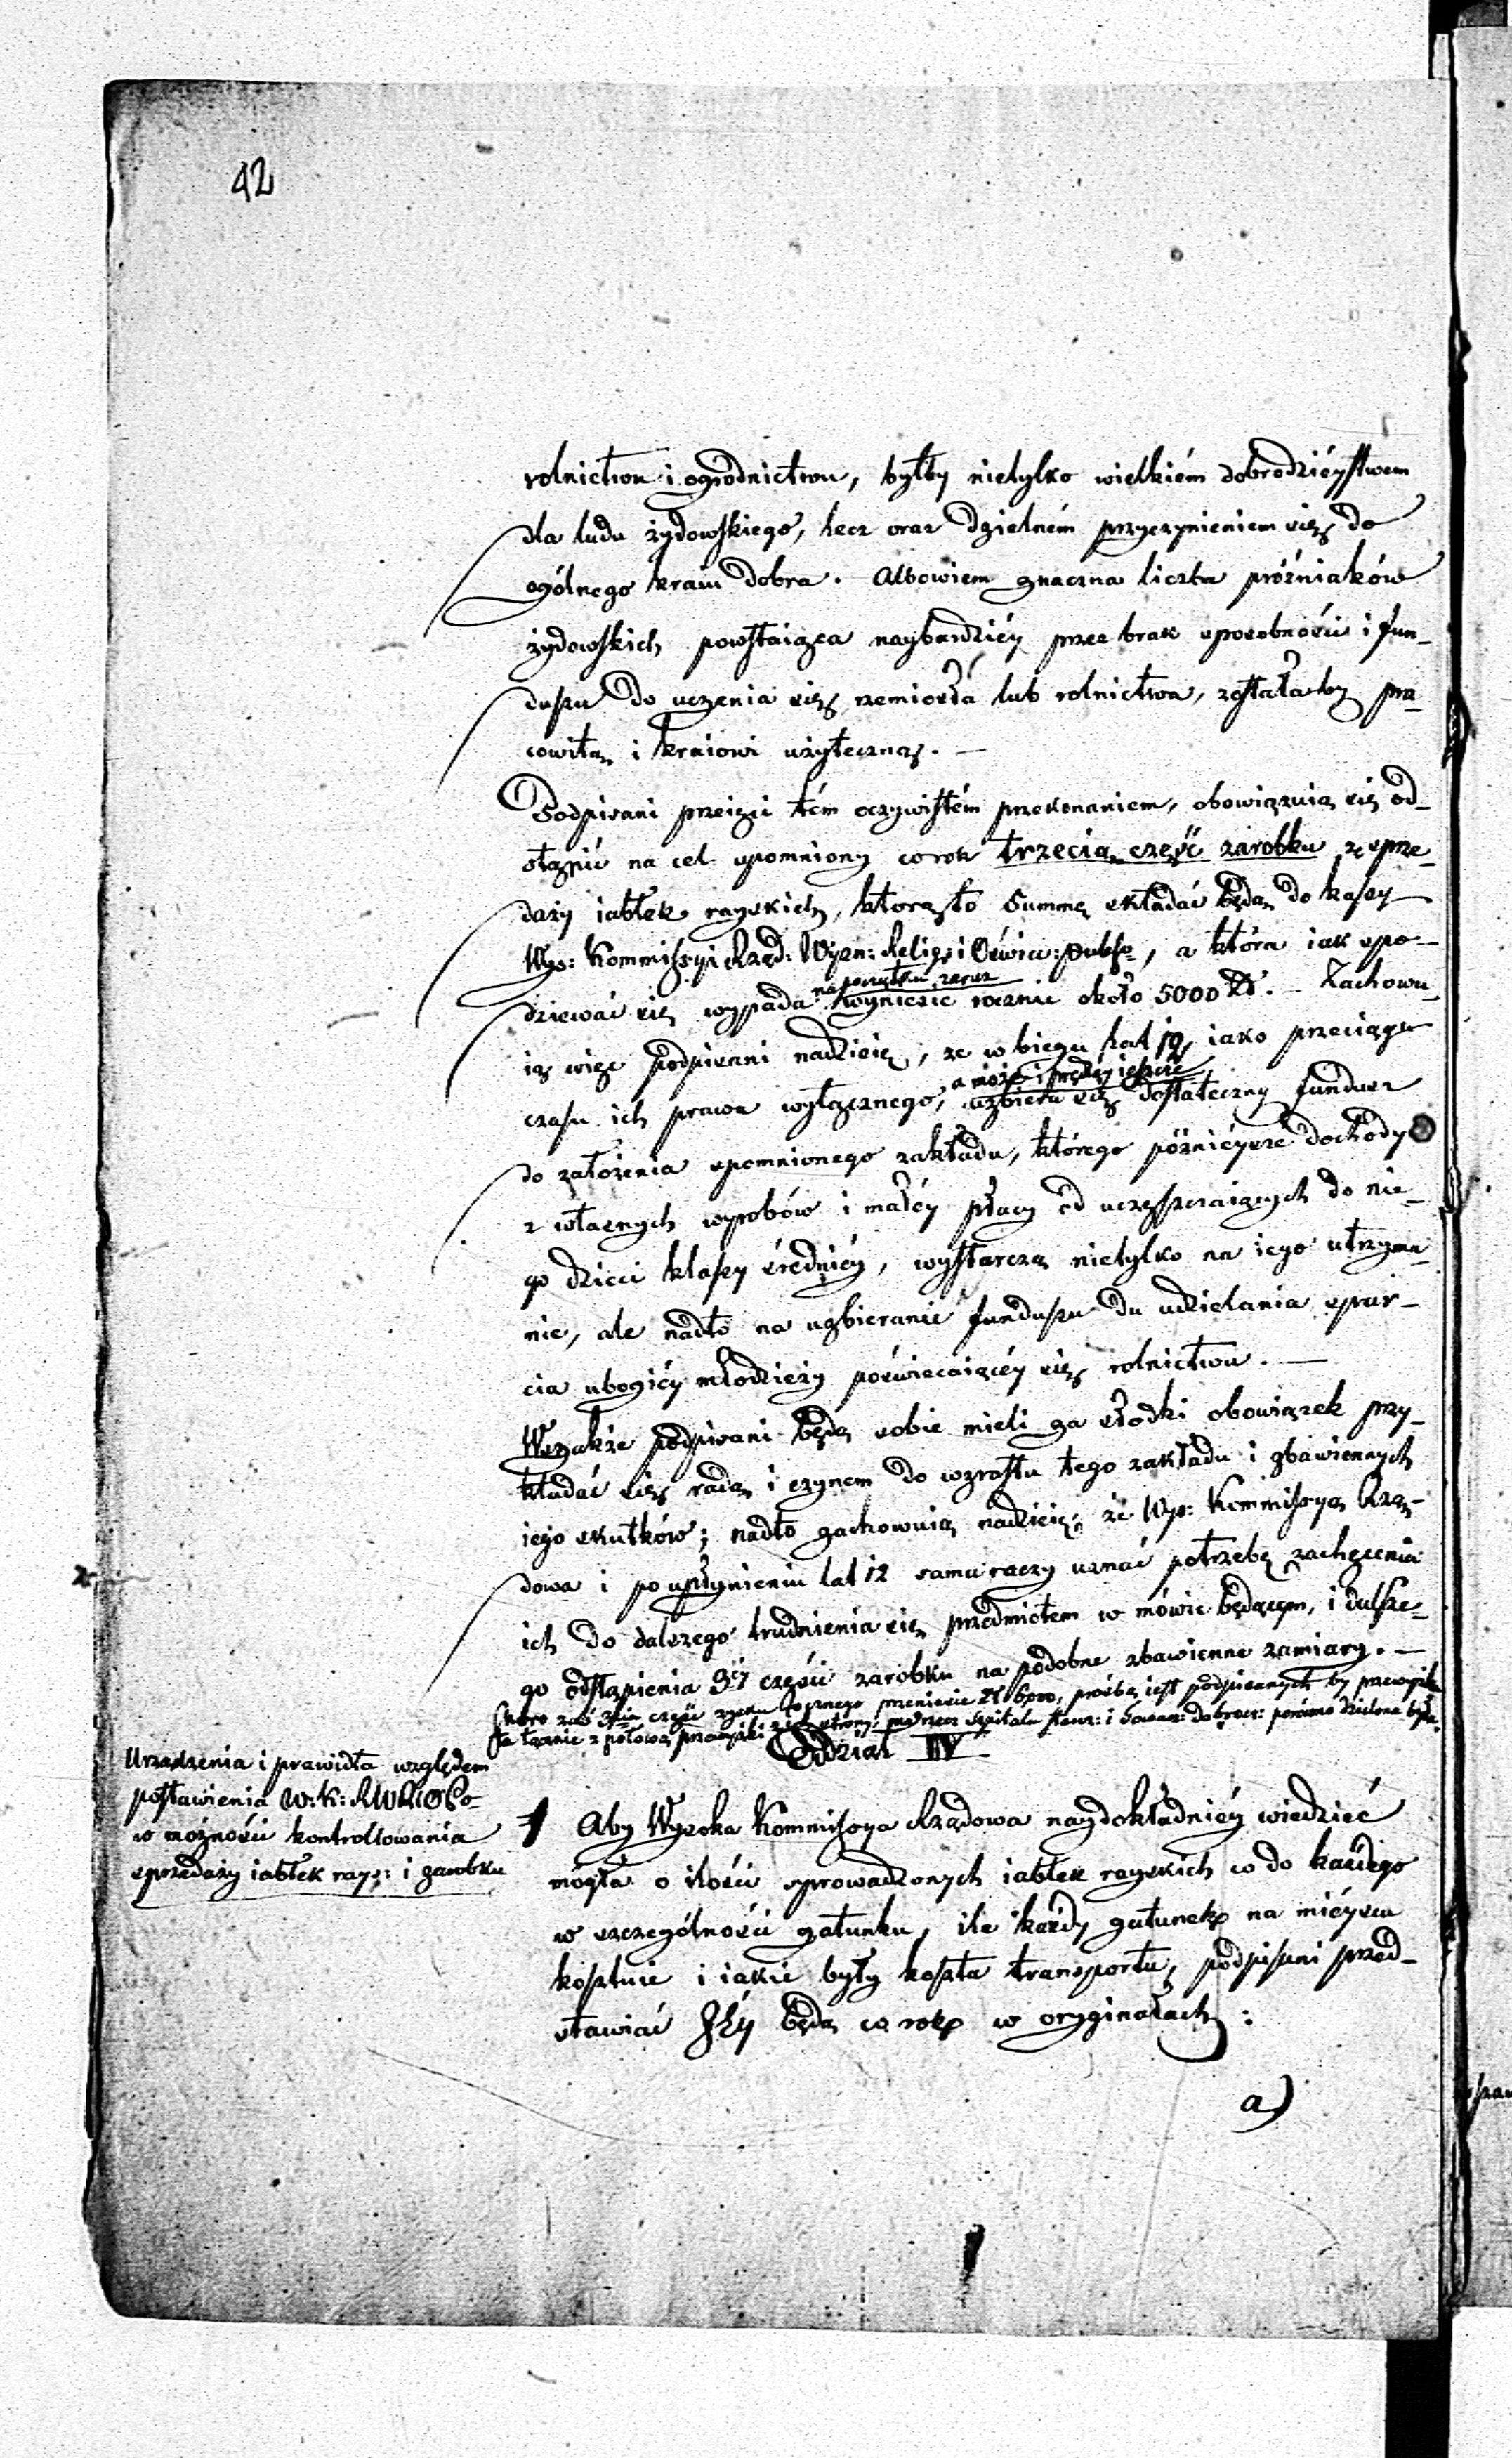 42
rolnictwu i ogrodnictwu, byłby nietylko wielkiém dobrodzieystwem
dla ludu żydowskiego, lecz oraz dzielném przyczynieniem się do
ogólnego kraiu dobra. Albowiem znaczna liczba próżniaków
żydowskich powstaiąca naybardziéy przez brak sposobności i fun-
duszu do uczenia się rzemiosła lub rolnictwa, zostałaby pra-
cowitą i kraiowi użyteczną. —
Podpisani przeięci tém oczywistém przekonaniem, obowiązuią się od-
stąpić na cel spomniony corok trzecią część zarobku ze sprze-
daży iabłek rayskich, którąto Summę składać będą do kassy
Wys: Kommissyi Rząd: Wyzn: Relig: i Oświec: publ:, a która iak spo-
na początku zaraz
dziewać się wypada wyniesie rocznie około 5000 Zł. — Zachowu-
ią więc podpisani nadzieię, że w biegu lat 12, iako przeciągu
a może i prędzéy ieszcze
czasu ich prawa wyłącznego, uzbiera się dostateczny fundusz
do założenia spomnionego zakładu, którego późnieysze dochody
z własnych wyrobów i małéy płacy od uczęszczaiących do nie-
go dzieci klassy średniéy, wystarczą nietylko na iego utrzyma-
nie, ale nadto na uzbieranie funduszu do udzielania wspar-
cia ubogiéy młodzieży poświęcaiącéy się rolnictwu. —
Wszakże podpisani będą sobie mieli za słodki obowiązek przy-
kładać się radą i czynem do wzrostu tego zakładu i zbawiennych
iego skutków; nadto zachowuią nadzieię, że Wys: Kommissya Rzą-
dowa i po upłynieniu lat 12 sama raczy uznać potrzebę zachęcenia
ich do dalszego trudnienia się przedmiotem w mowie będącym, i dalsze-
go odstąpienia 3éy części zarobku na podobne zbawienne zamiary. —
Skoro zaś 3cia część zysku rocznego przeniesie Zł 6000, prośbą iest podpisanych by przewyżka
ta łącznie z połową przewyżki z ich strony, na rzecz Szpitala starz: i Towarz: Dobrocz: porówno dzielona była.
Oddział IV
Urządzenia i prawidła względem
postawienia W: K: R W R i O P
w możności kontrollowania
sprzedaży iabłek rays: i zarobku
1 Aby Wysoka Kommissya Rządowa naydokładniéy wiedzieć
mogła o ilości sprowadzonych iabłek rayskich co do każdego
w szczególności gatunku, ile każdy gatunek na mieyscu
kosztuie i iakie były koszta transportu, podpisani przed-
stawiać Jéy będą co rok w oryginałach:
a)